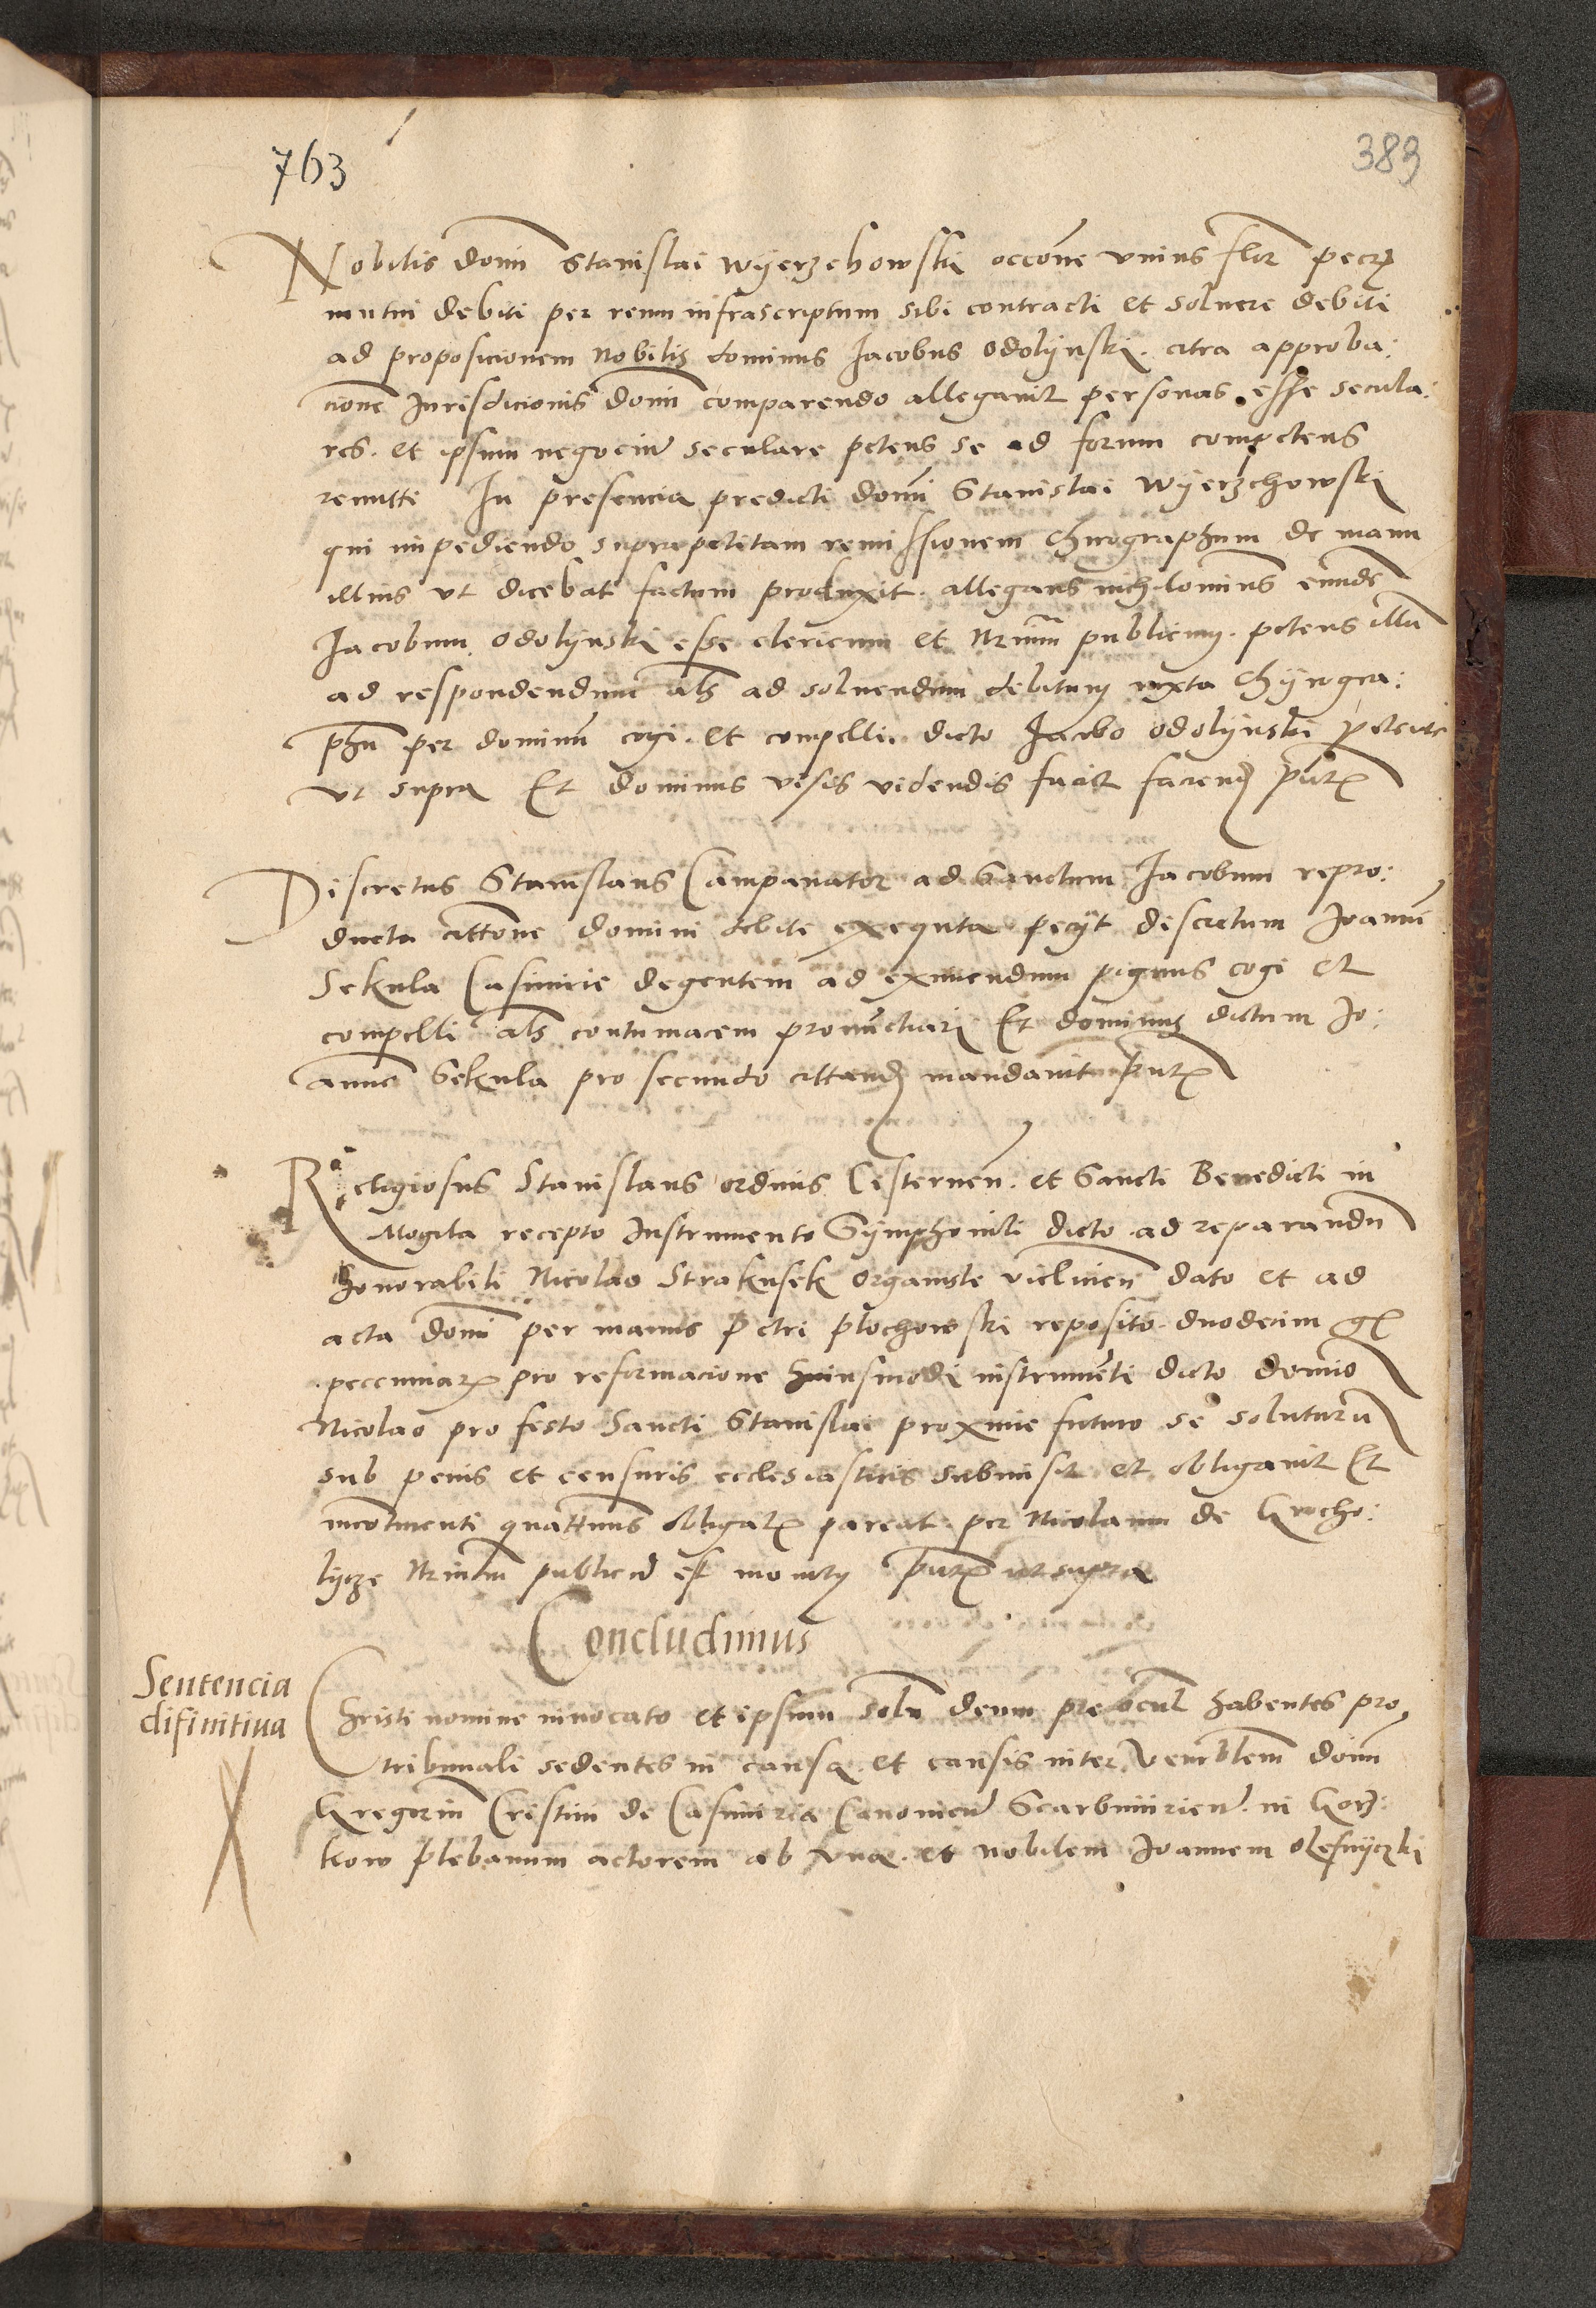 763
389
Nobilis domi Stanislai Wyerzchowski occone vnius flor pecz
mutui debiti per reum infrascriptum sibi contracti et soluere debiti
ad proposicionem Nobilis dominus Jacobus Odolynski. citra approba:
cione Jurisdicionis domi comparendo allegauit personas esse secula:
res. et ipsum negociu seculare petens se ad forum competens
remitti In presencia predicti domi Stanislai Wyerzchowski
qui impediendo suprapetitam remissionem Chirographum de manu
illius vt dicebat factum produxit. allegans nichilominus eunde
Jacobum Odolynski esse clericum et Nrium publicum. petens illu
ad respondendum als ad soluendum debitum iuxta Chyrogra:
phu per dominu cogi. et compelli. dicto Jacobo Odolynski petente
vt supra Et dominus visis videndis facit faciend putz
Discretus Stanislaus Campanator ad Sanctum Jacobum repro:
ducta cittone domini debite exequta pecyt discretum Joanne
Sekula Casimirie degentem ad eximendum pignus cogi et
compelli als contumacem pronuctiari Et dominus dictum Jo:
anne Sekula pro secundo cittand mandauit putz
Religiosus Stanislaus ordinis Cisternen. et Sancti Benedicti in
Mogila recepto Instrumento Symphonili dicto ad reparandu
honorabili Nicolao Strakusek Organiste vielicien dato et ad
acta domi per manus Petri Plochowski reposito. duodecim gr
peccuniarz pro reformacione huiusmodi instrumeti dicto domio
Nicolao pro festo Sancti Stanislai proxime futuro se soluturu
sub penis et censuris ecclesiasticis submisit et obligauit Et
incotinenti quattenus obligatz pareat per Nicolaum de Grocho:
lycze Nrium publicu est monity putz ut supra
Concludimus
Sentencia
difinitiua
Christi nomine inuocato et ipsum solu deum pre ocul habentes pro
tribunali sedentes in causa et causis inter Venrblem domu
Gregoriu Cristini de Casimiria Canonicu Scarbimirien. in Gorz:
kow plebanum actorem ab vna. et Nobilem Joannem Olesnyczki